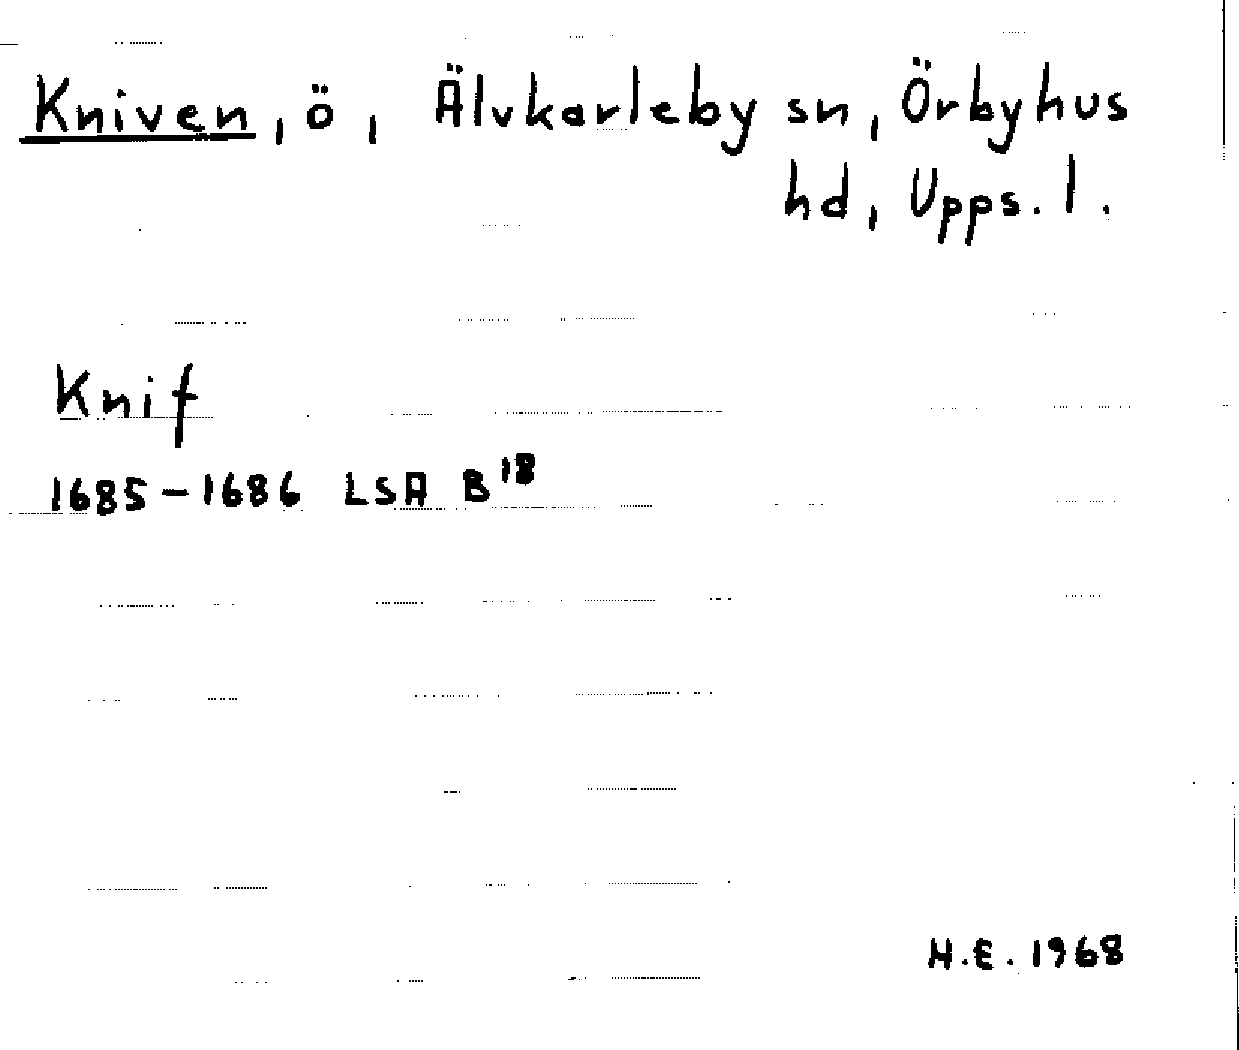 Kniven, ö, Älvkarleby sn, Örbyhus
hd, Upps. l.
Knif
1685-1686 LSA B¹⁸
H.E. 1968